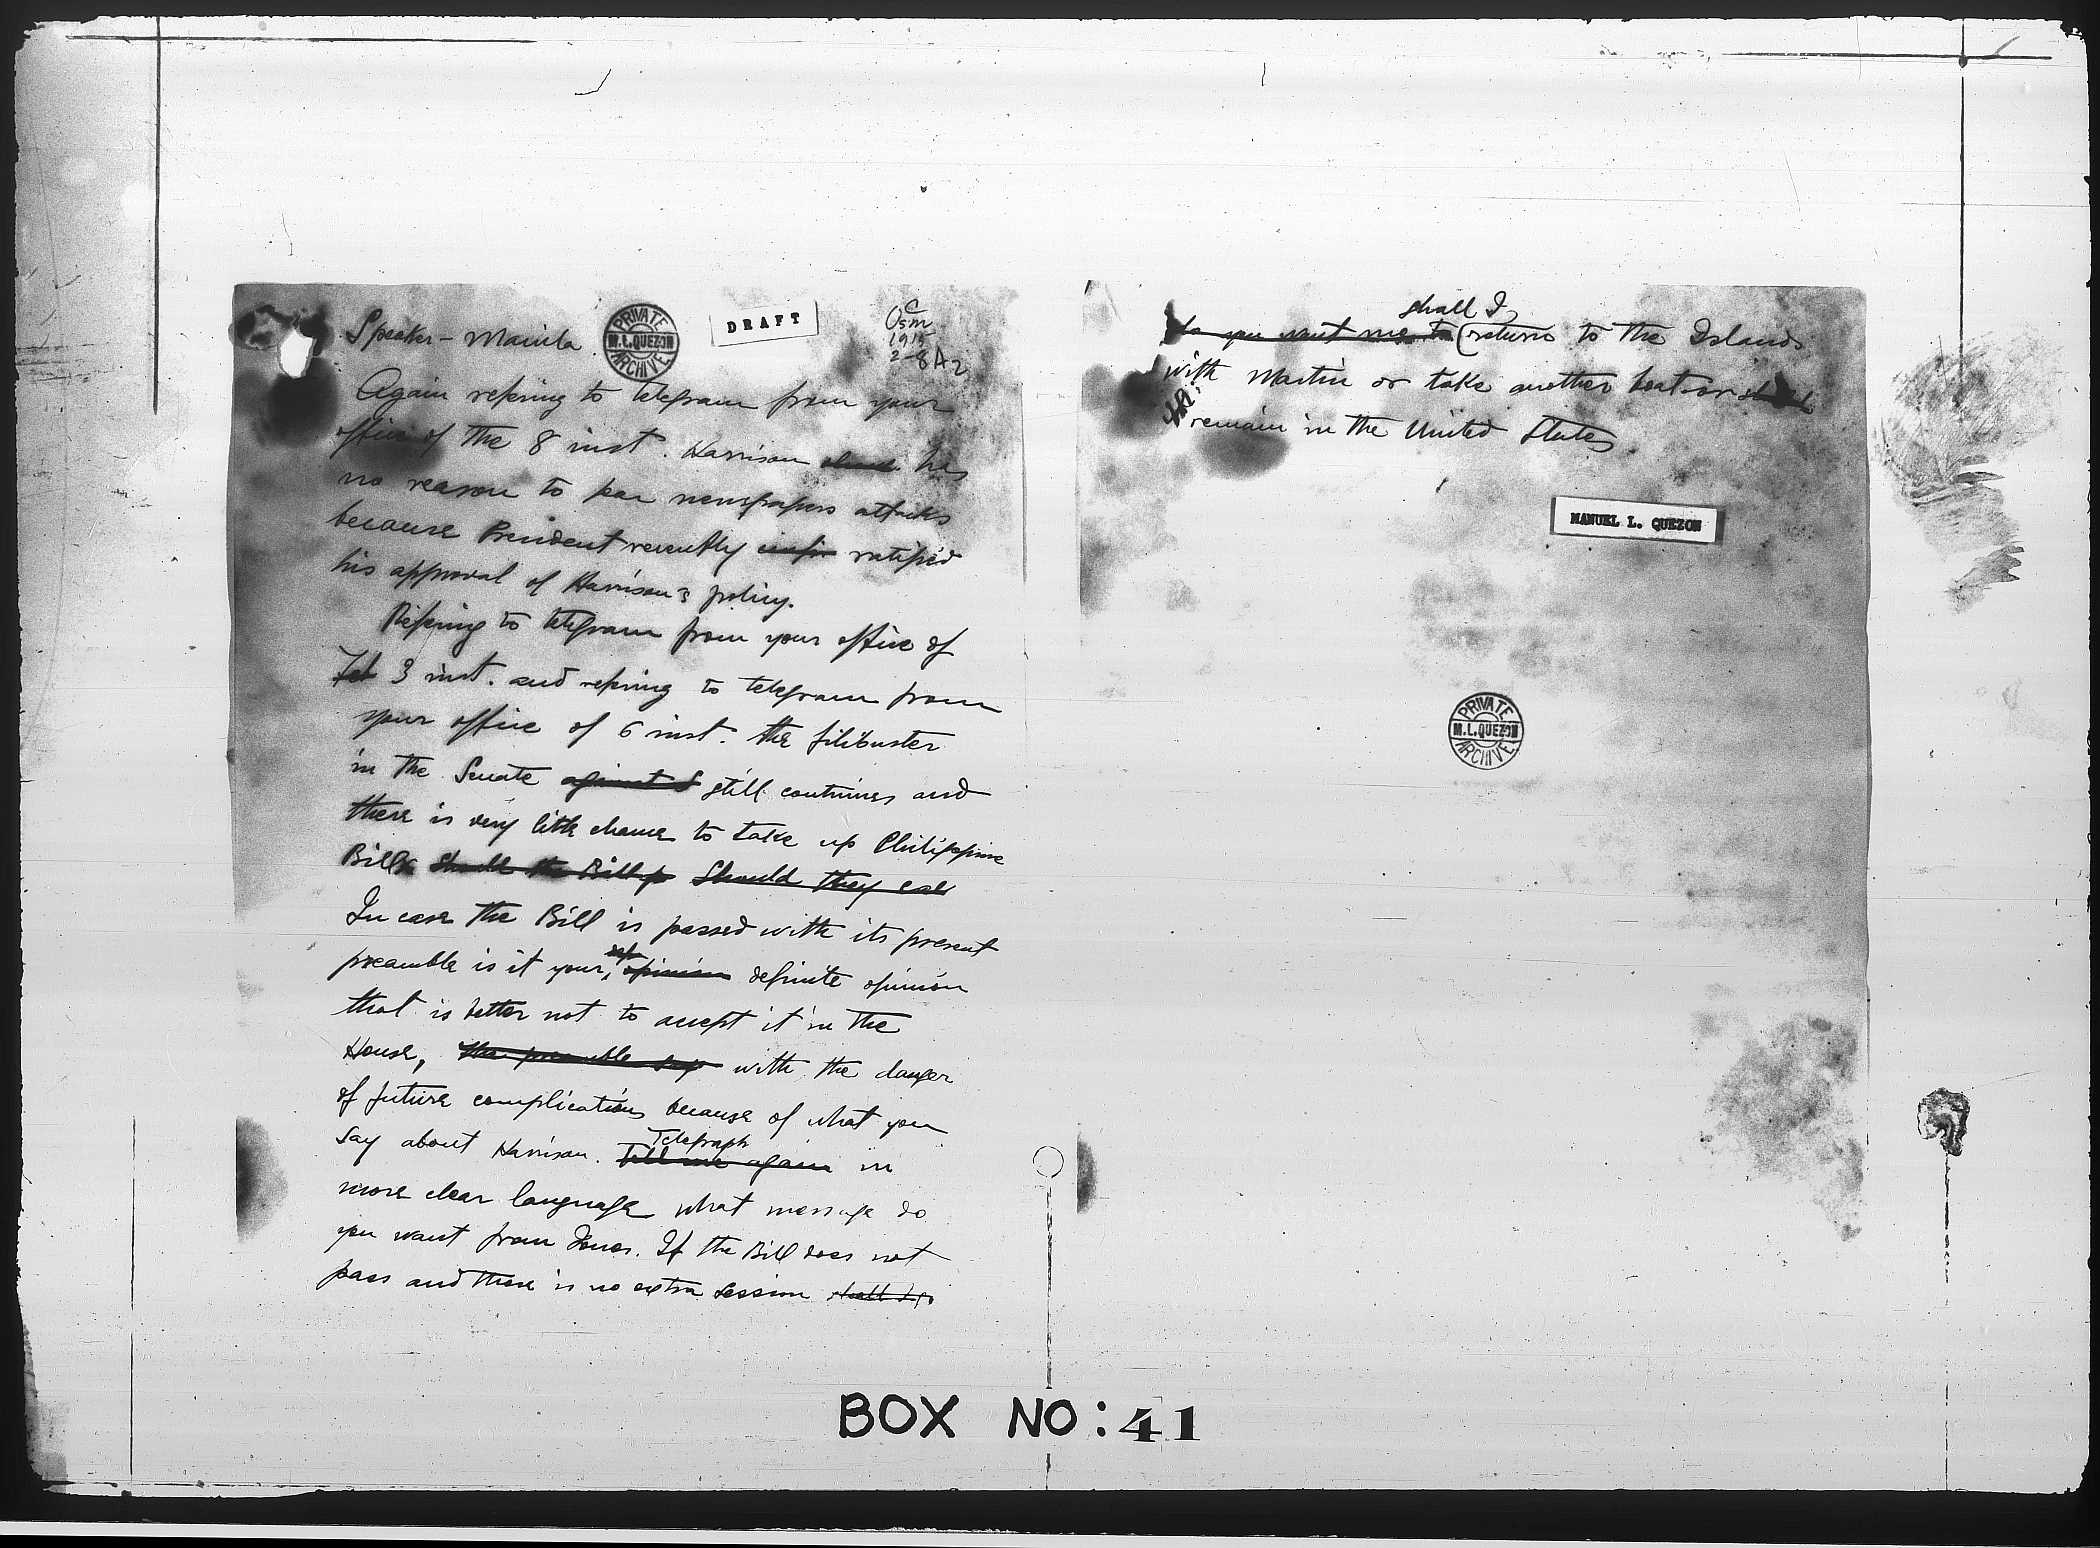 Speaker - Manila.
PRIVATE
M.L.QUEZON
ARCHIVE
DRAFT
C
Osm
1915
2-8A2
Again refering to telegram from your
office of the 8 inst. Harrison has
no reason to fear newspapers attacks
because President recently ratified
his approval of Harrison's policy.
Refering to telegram from your office of
Feb 3 inst. and refering to telegram from
your office of 6 inst. the filibuster
in the Senate against S still continues and
there is very little chance to take up Philippine
Bill. Should the Bill p Should they cal
In case the Bill is passed with its present
preamble is it your opinion definite opinion
that is better not to accept it in the
House, the preamble with the danger
of future complications because of what you
say about Harrison. Tell me again in
Telegraph
more clear language what message do
you want from Jones. If the Bill does not
pass and there is no extra session shall I
shall I
Do you want me to return to the Islands
with Martin or take another boat or
remain in the United States
MANUEL L. QUEZON
PRIVATE
M.L.QUEZON
ARCHIVE
BOX NO: 41